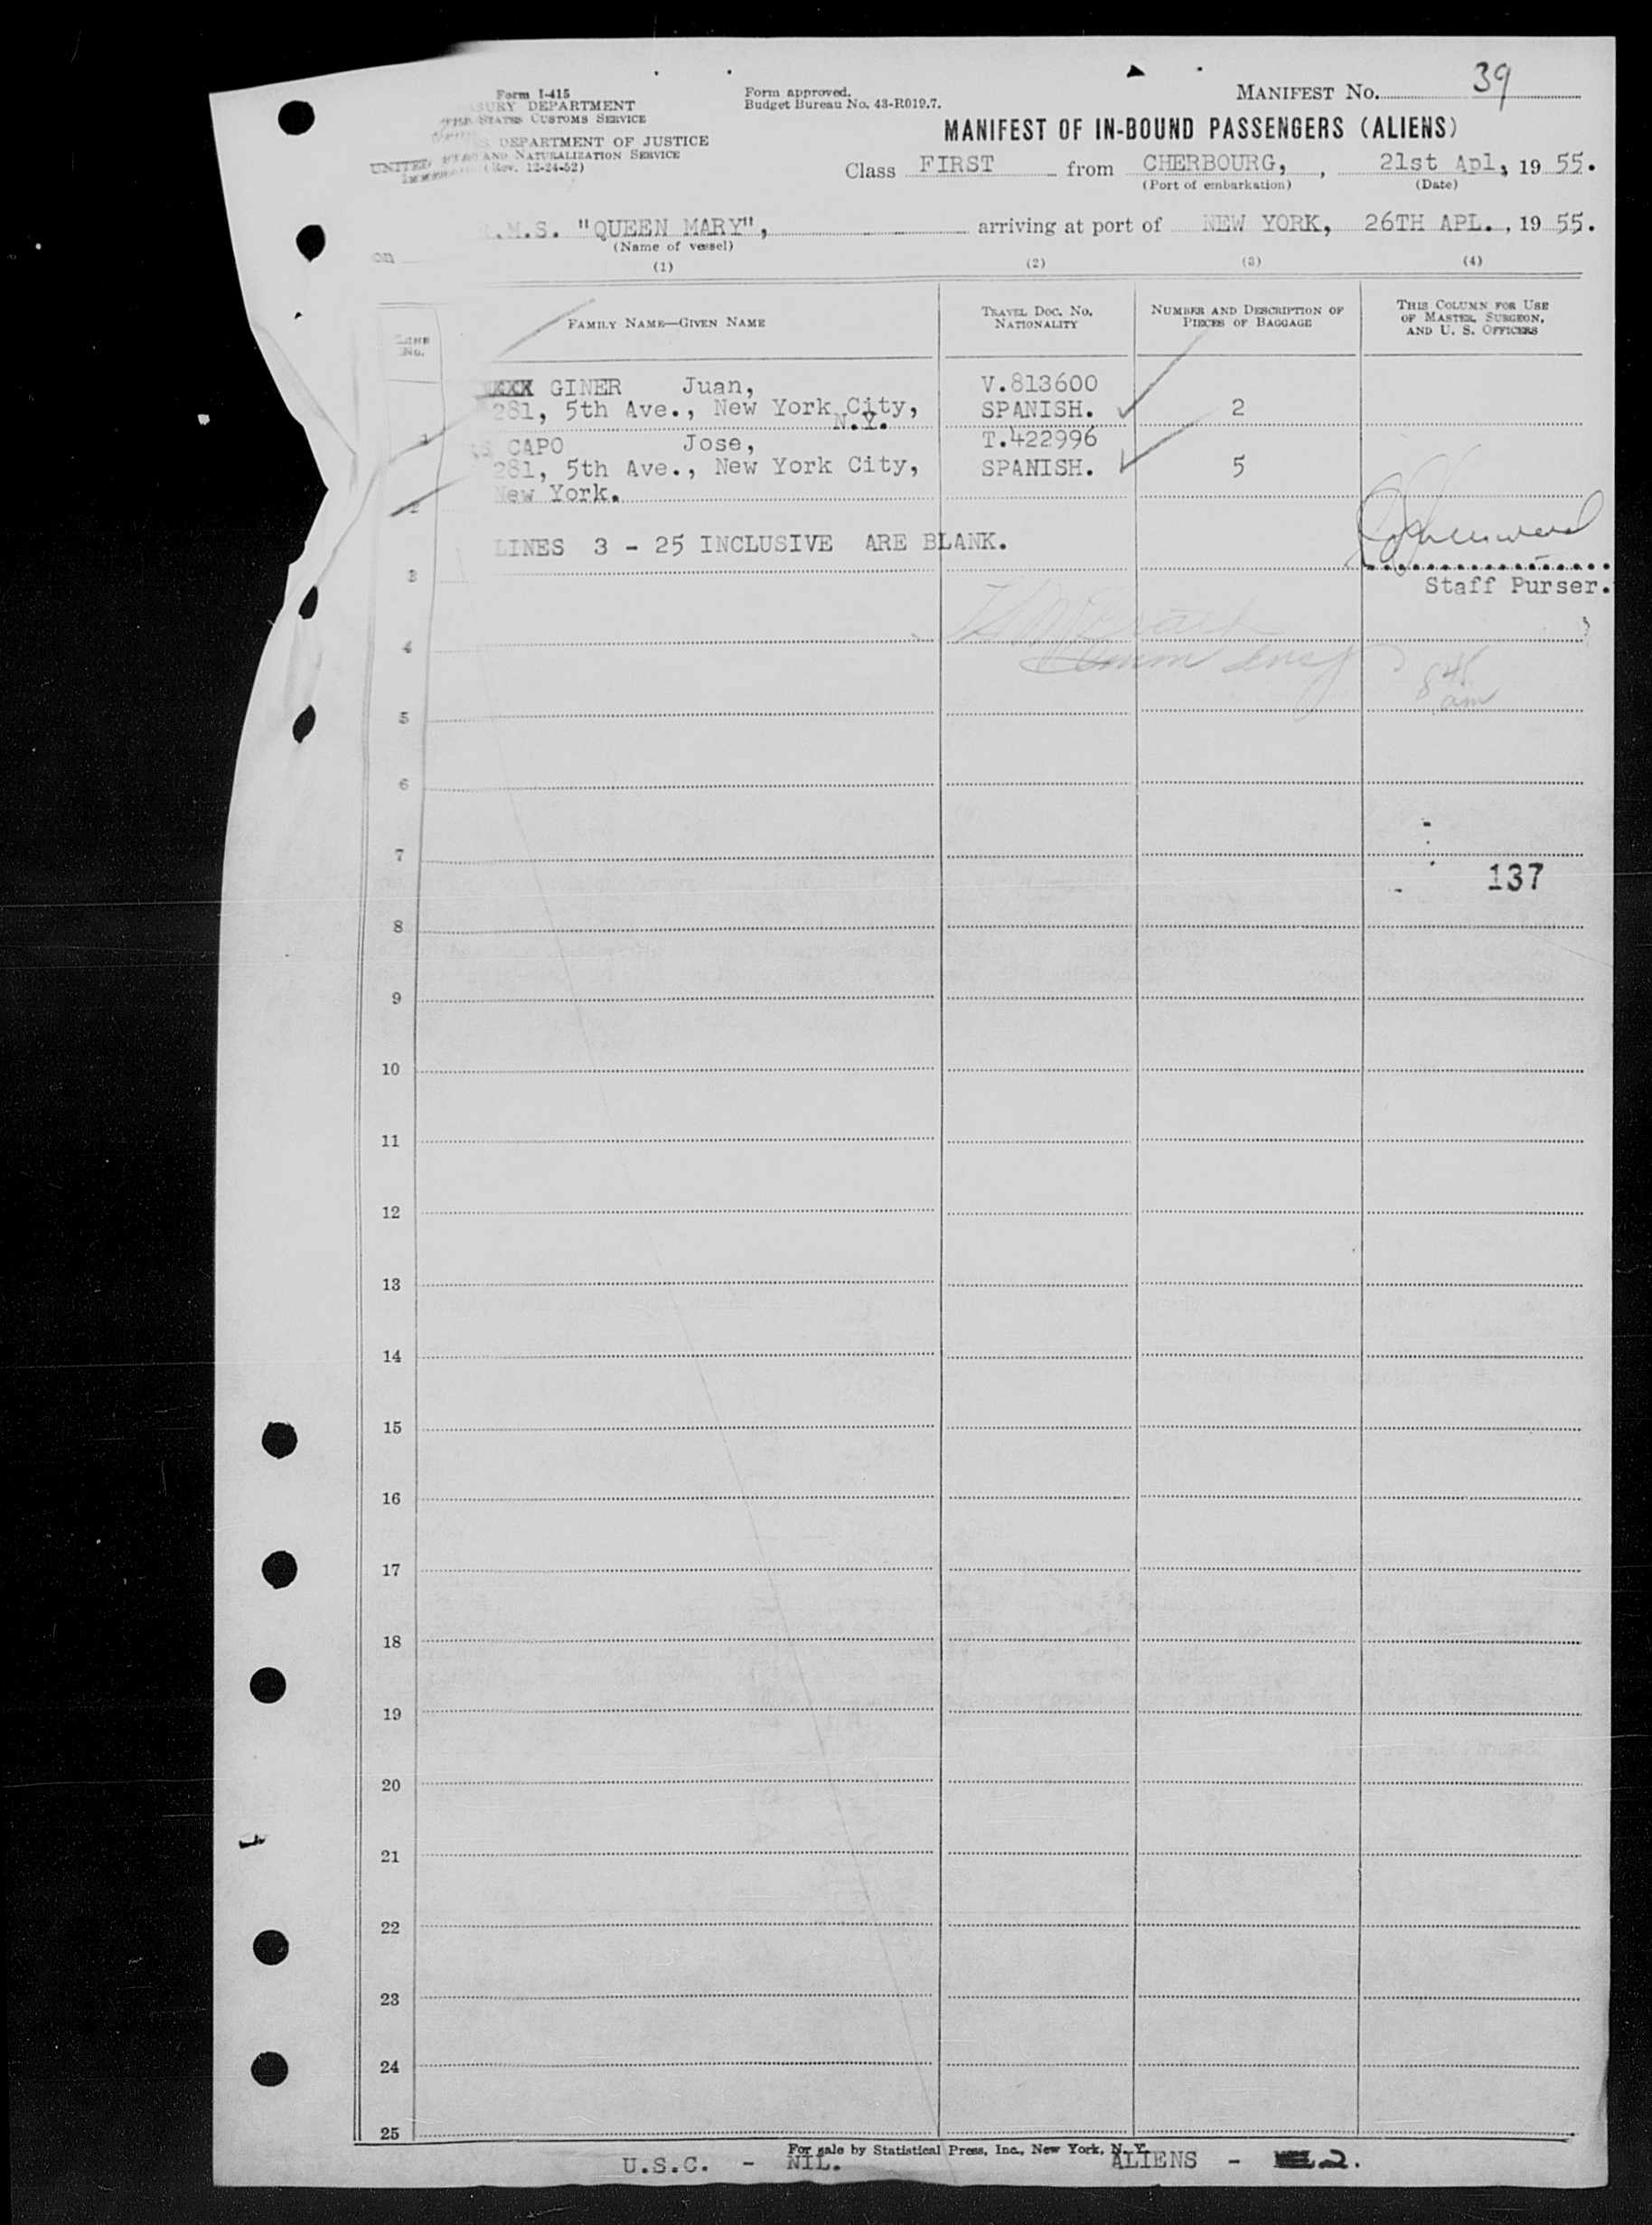 Form I-415
Form approved.
Budget Bureau No. 43-R019.7.
MANIFEST No. 39
DEPARTMENT
STATES CUSTOMS SERVICE
MANIFEST OF IN-BOUND PASSENGERS (ALIENS)
DEPARTMENT OF JUSTICE
UNITED
AND NATURALIZATION SERVICE
(Rev. 12-24-52)
Class FIRST from CHERBOURG, , 21st Apl, 19 55.
(Port of embarkation) (Date)
on .M.S. "QUEEN MARY", arriving at port of NEW YORK, 26TH APL. , 19 55.
(Name of vessel)
(1) (2) (3) (4)
LINE No.
FAMILY NAME—GIVEN NAME
TRAVEL DOC. No.
NATIONALITY
NUMBER AND DESCRIPTION OF
PIECES OF BAGGAGE
THIS COLUMN FOR USE
OF MASTER, SURGEON,
AND U. S. OFFICERS
XXX GINER Juan, V.813600
281, 5th Ave., New York City, SPANISH. 2
N.Y.
1
CAPO Jose, T.422996
281, 5th Ave., New York City, SPANISH. 5
New York.
2
LINES 3 - 25 INCLUSIVE ARE BLANK.
3
Staff Purser.
4
Imm Insp
8 45
am
5
6
7
137
8
9
10
11
12
13
14
15
16
17
18
19
20
21
22
23
24
25
For sale by Statistical Press, Inc., New York, N. Y.
U.S.C. - NIL. ALIENS - 2.